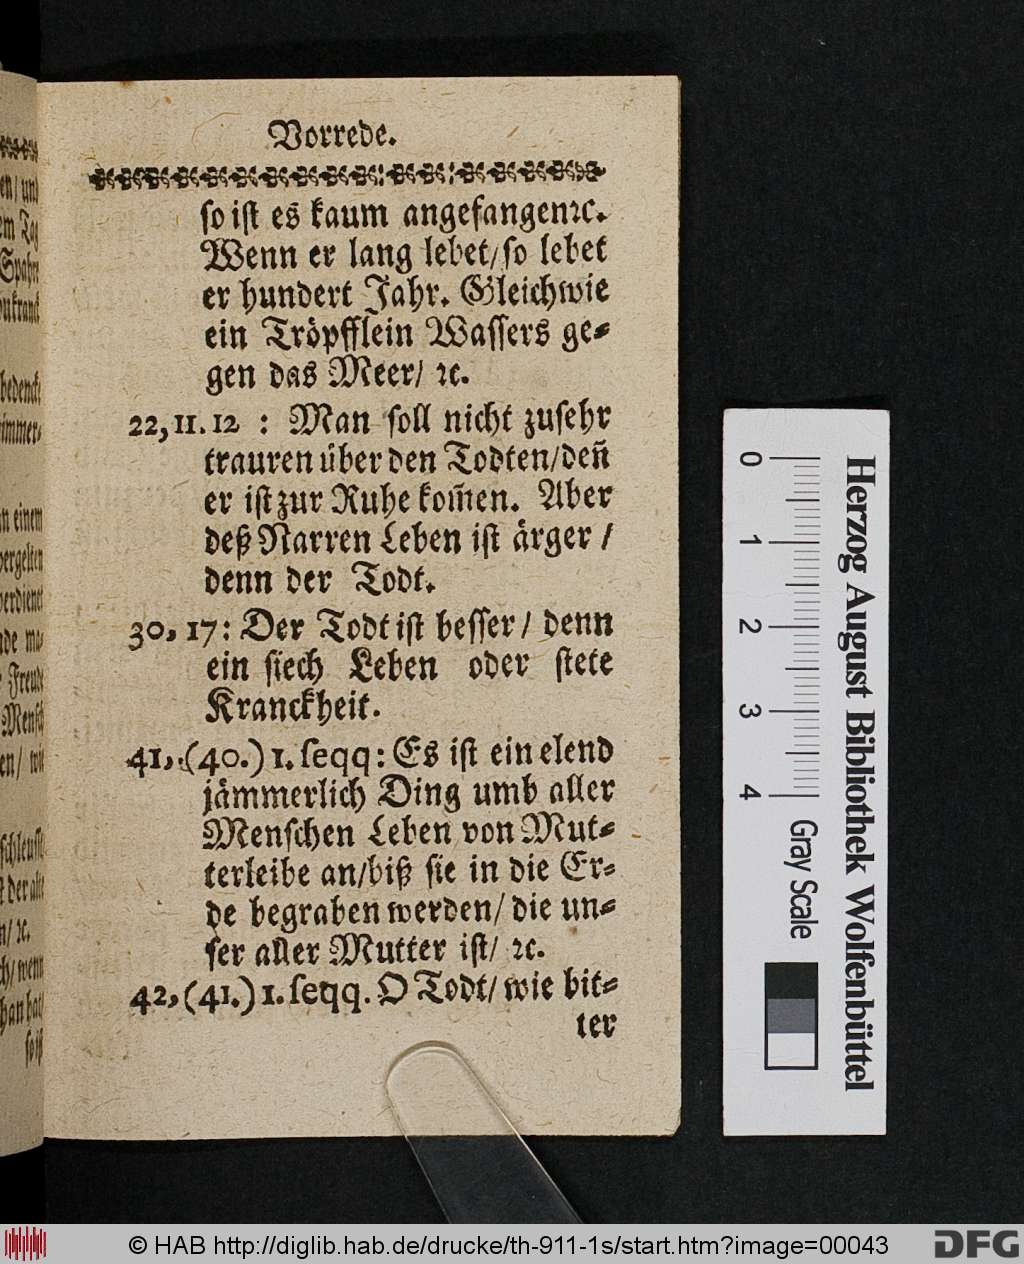 Vorrede.
so ist es kaum angefangen ꝛc.
Wenn er lang lebet/ so lebet
er hundert Jahr. Gleichwie
ein Tröpfflein Wassers ge-
gen das Meer/ ꝛc.
22, 11. 12 : Man soll nicht zusehr
trauren über den Todten/ deñ
er ist zur Ruhe kom̃en. Aber
deß Narren Leben ist ärger /
denn der Todt.
30, 17: Der Todt ist besser / denn
ein siech Leben oder stete
Kranckheit.
41, (40.) 1. seqq: Es ist ein elend
jämmerlich Ding umb aller
Menschen Leben von Mut-
terleibe an/ biß sie in die Er-
de begraben werden/ die un-
ser aller Mutter ist/ ꝛc.
42, (41.) 1. seqq. O Todt/ wie bit-
ter
0 1 2 3 4 Gray Scale
Herzog August Bibliothek Wolfenbüttel
© HAB http://diglib.hab.de/drucke/th-911-1s/start.htm?image=00043
DFG